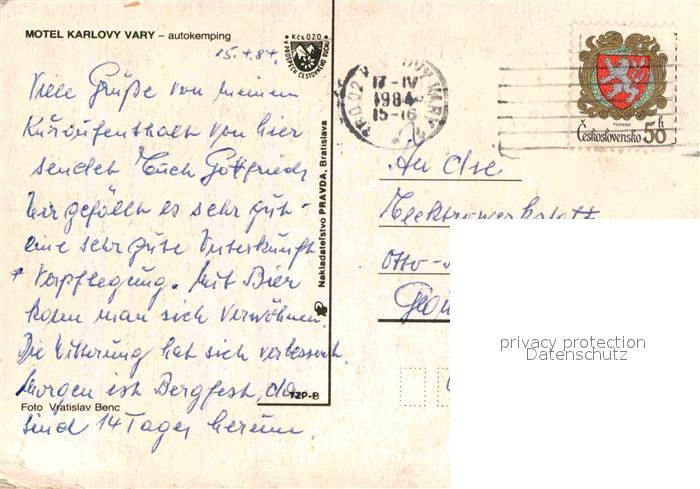 MOTEL KARLOVY VARY – autokemping
15.4.84.
Kčs 0,20
V PROSPĚCH CESTOVNÍHO RUCHU
Viele Grüße von meinem
Kuraufenthalt von hier
sendet Euch Gottfried
Mir gefällt es sehr gut -
eine sehr gute Unterkunft
+ Verpflegung. Mit Bier
kann man sich verwöhnen.
Die Witterung hat sich verbessert.
Morgen ist Bergfest, da
sind 14 Tage herum
Foto Vratislav Benc
TZP-8
Nakladateľstvo PRAVDA, Bratislava
17-IV
1984
15-16
TURNOV
Československo 50 h
An die
Elektrowerkstatt
Otto-
privacy protection
Datenschutz